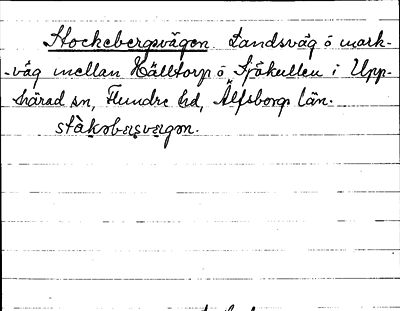 Stockebergsvägen Landsväg o mark-
-väg mellan Hälltorp o Sjökullen i Upp-
härad sn, Flundre hd, Älfsborgs län.